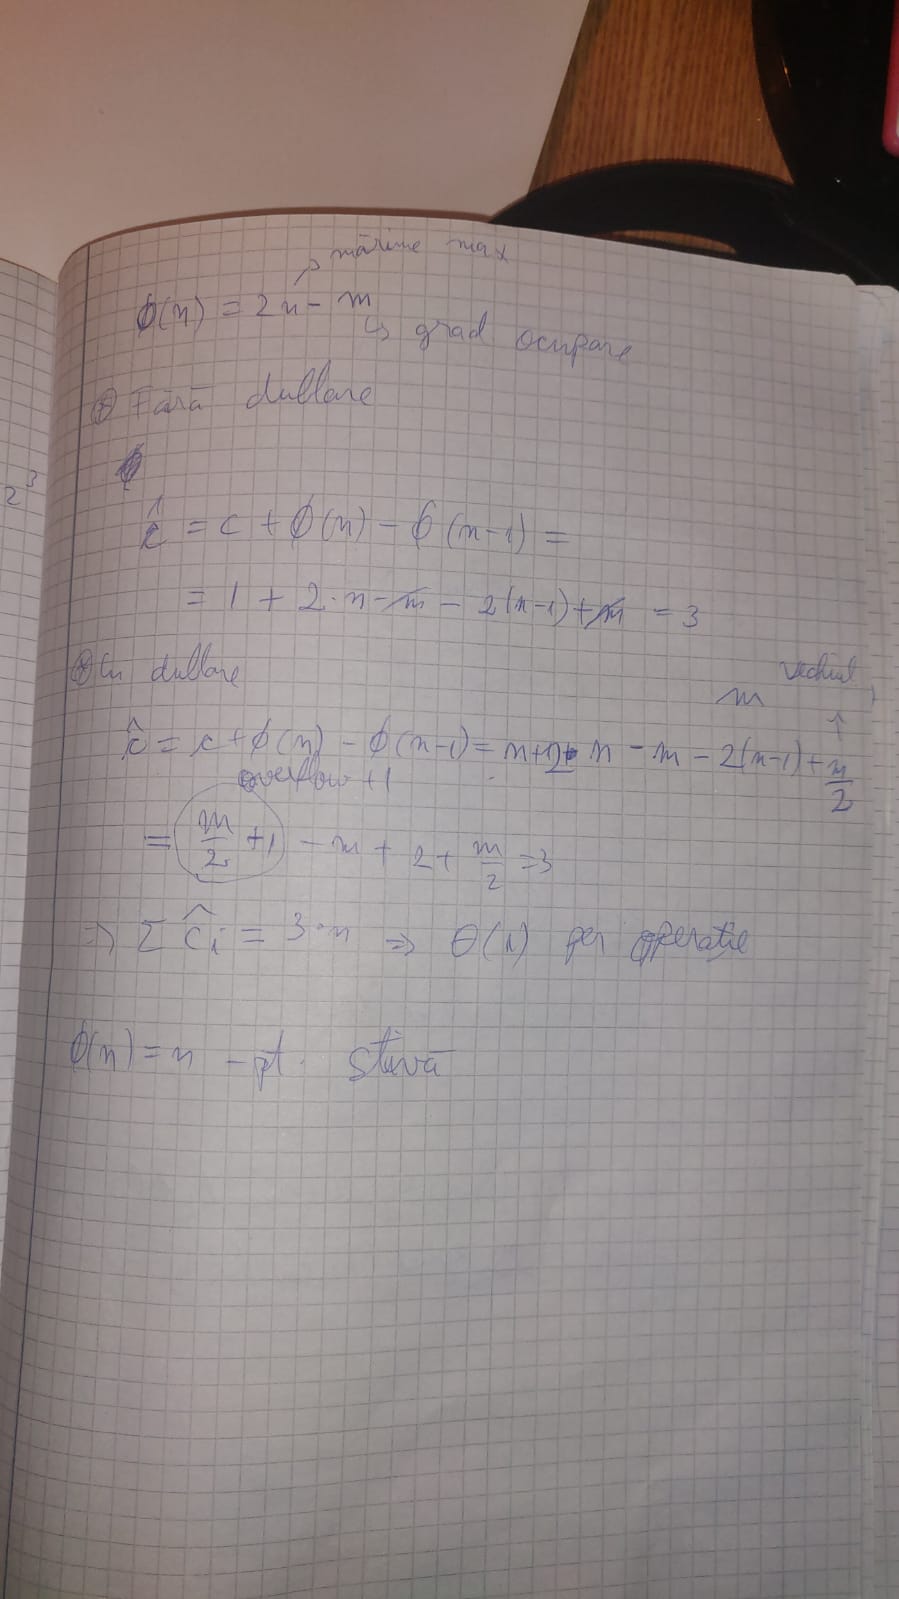 → mărime max
ϕ(n) = 2n - m
↳ grad ocupare
⊛ Fără dublare
ĉ = c + ϕ(n) - ϕ(n-1) =
= 1 + 2·n - m - 2(n-1) + m = 3
⊛ Cu dublare
m vechiul
↑
ĉ = c + ϕ(n) - ϕ(n-1) = n - m - 2(n-1) + m/2
overflow + 1
= m/2 + 1 - m + 2 + m/2 = 3
⇒ Σ ĉi = 3·n ⇒ Θ(1) per operatie
ϕ(n) = n - pt. stivă
2³